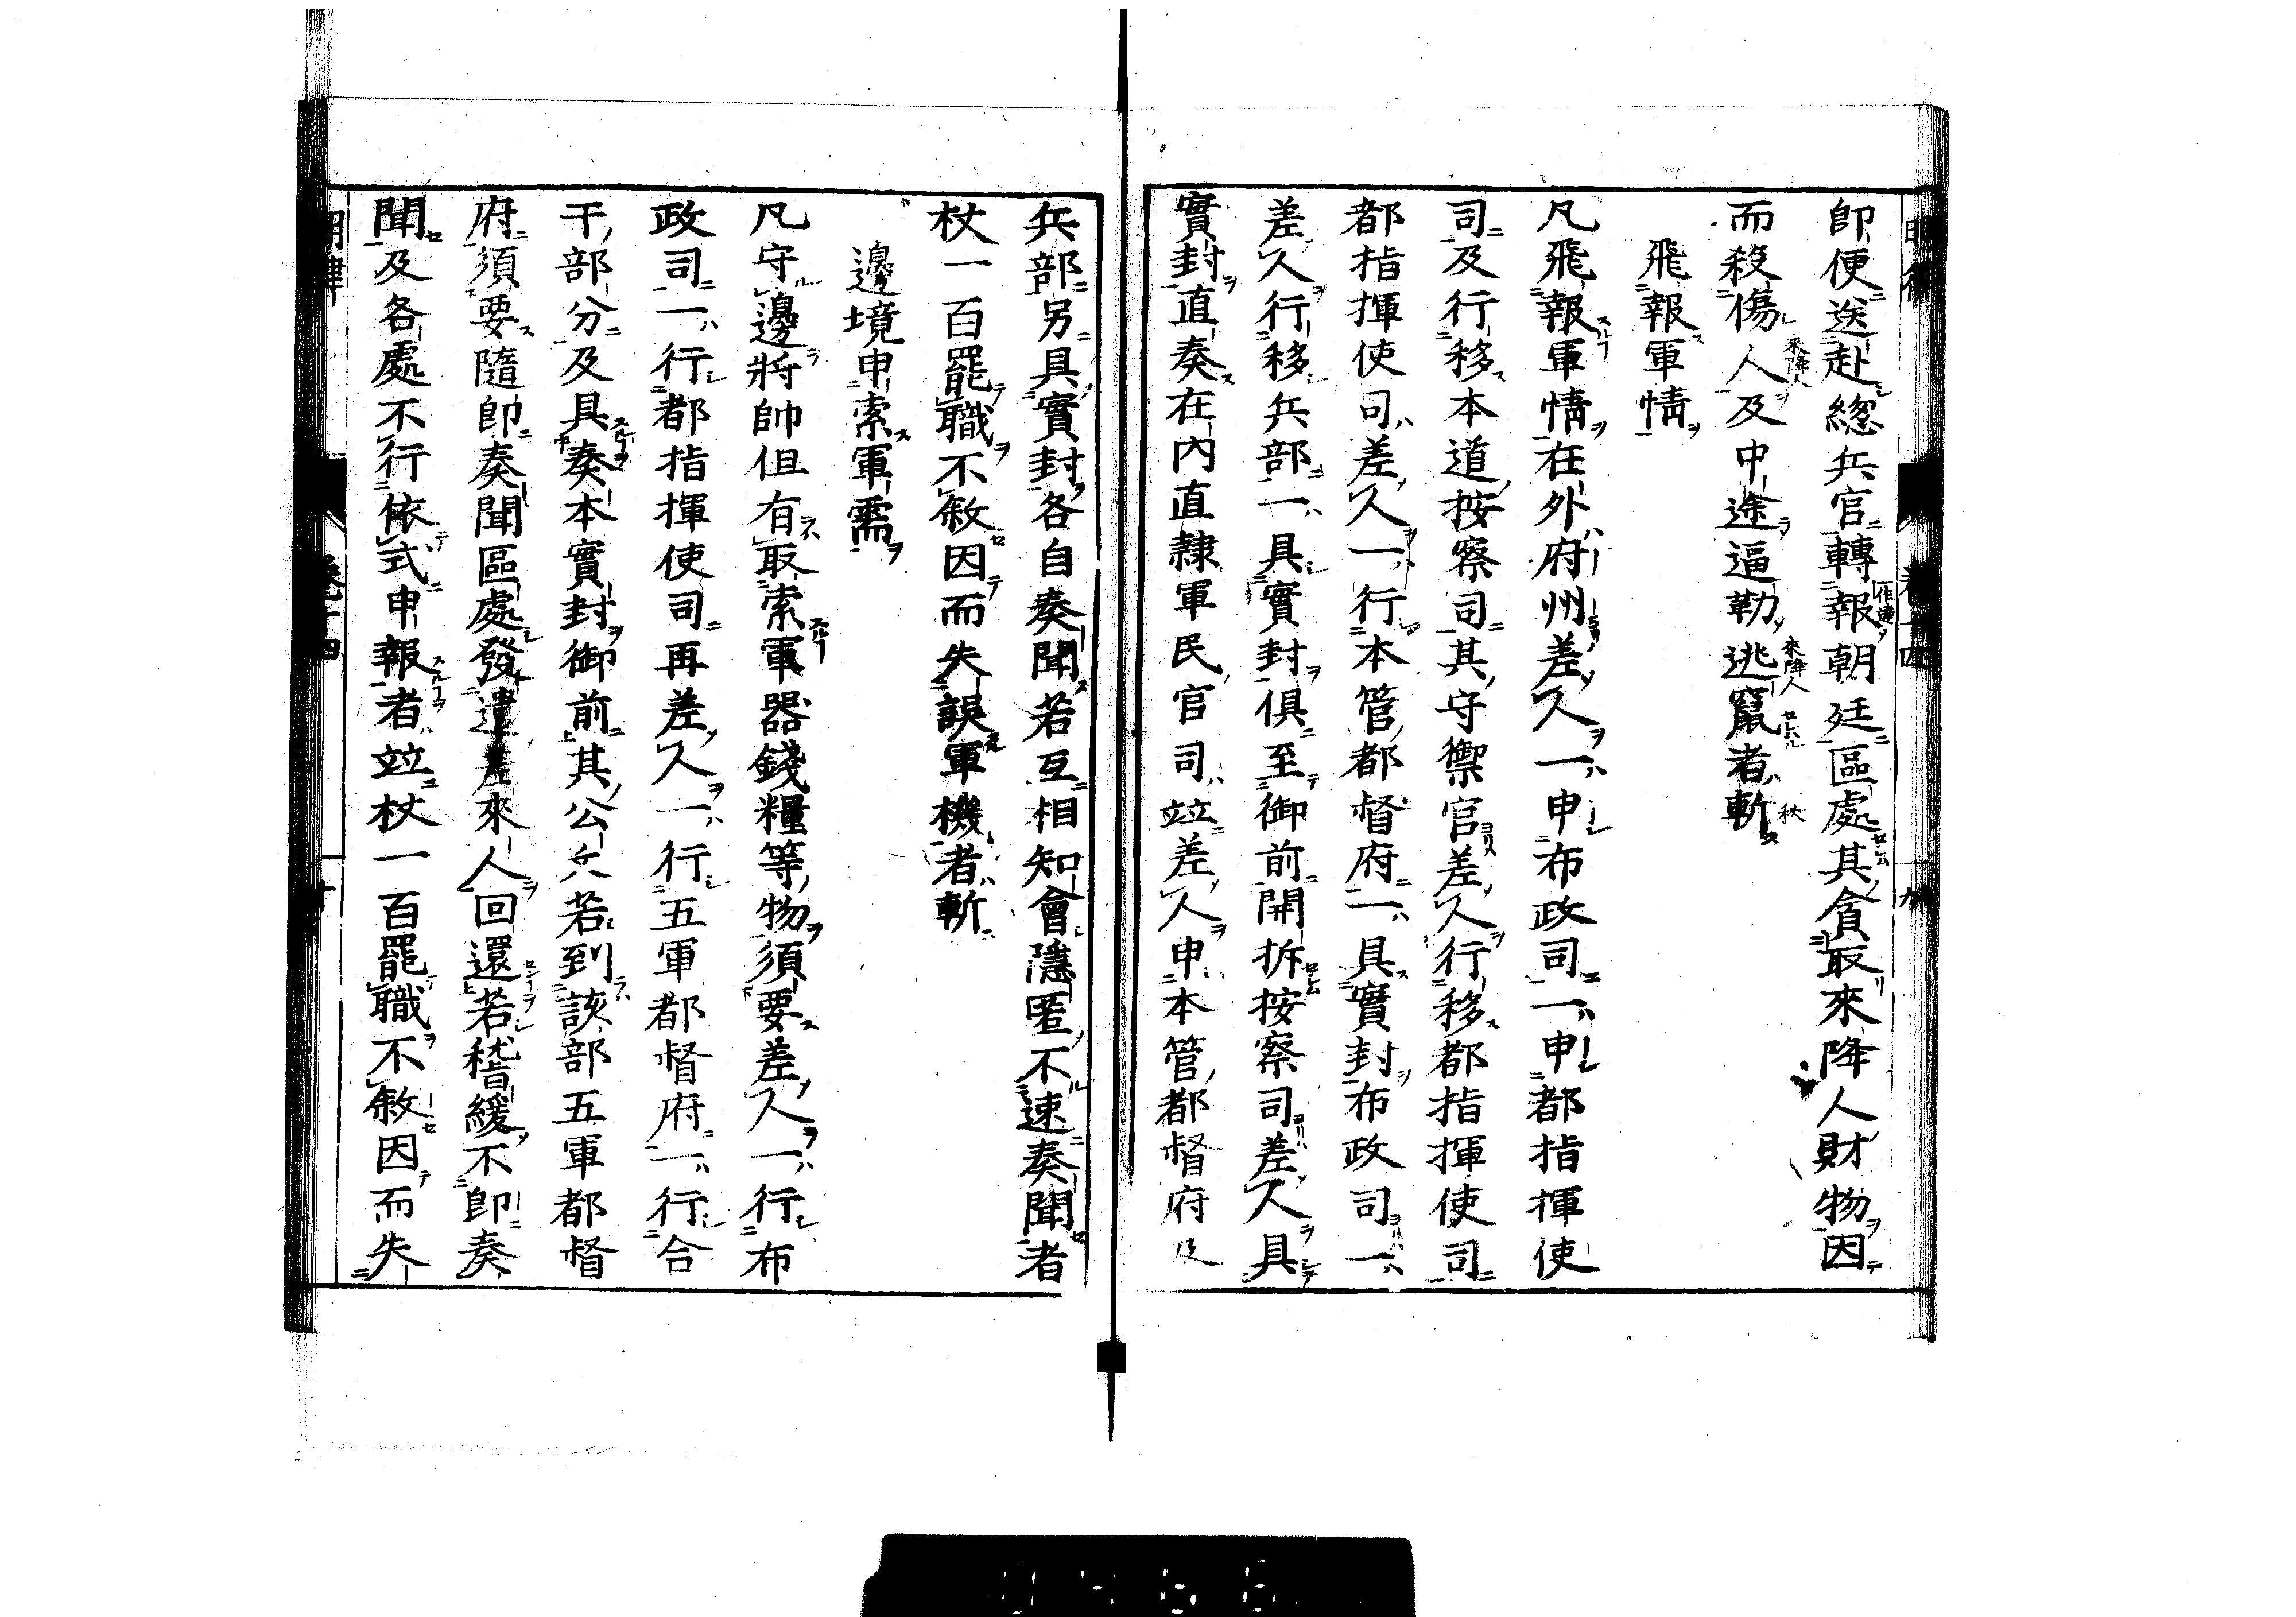 即便送赴總兵官轉報朝廷區處其貪取來降人財物因
而殺傷人及中途逼勒逃竄者斬
飛報軍情
凡飛報軍情在外府州差人一申布政司一申都指揮使
司及行移本道按察司其守禦官差人行移都指揮使司
都指揮使司差人一行本管都督府一具實封布政司一
差人行移兵部一具實封俱至御前開拆按察司差人具
實封直奏在內直隸軍民官司竝差人申本管都督府及
兵部另具實封各自奏聞若互相知會隱匿不速奏聞者
杖一百罷職不敘因而失誤軍機者斬
邊境申索軍需
凡守邊將帥但有取索軍器錢糧等物須要差人一行布
政司一行都指揮使司再差人一行五軍都督府一行合
干部分及具奏本實封御前其公文若到該部五軍都督
府須要隨即奏聞區處發遣差來人回還若稽緩不即奏
聞及各處不行依式申報者竝杖一百罷職不敘因而失